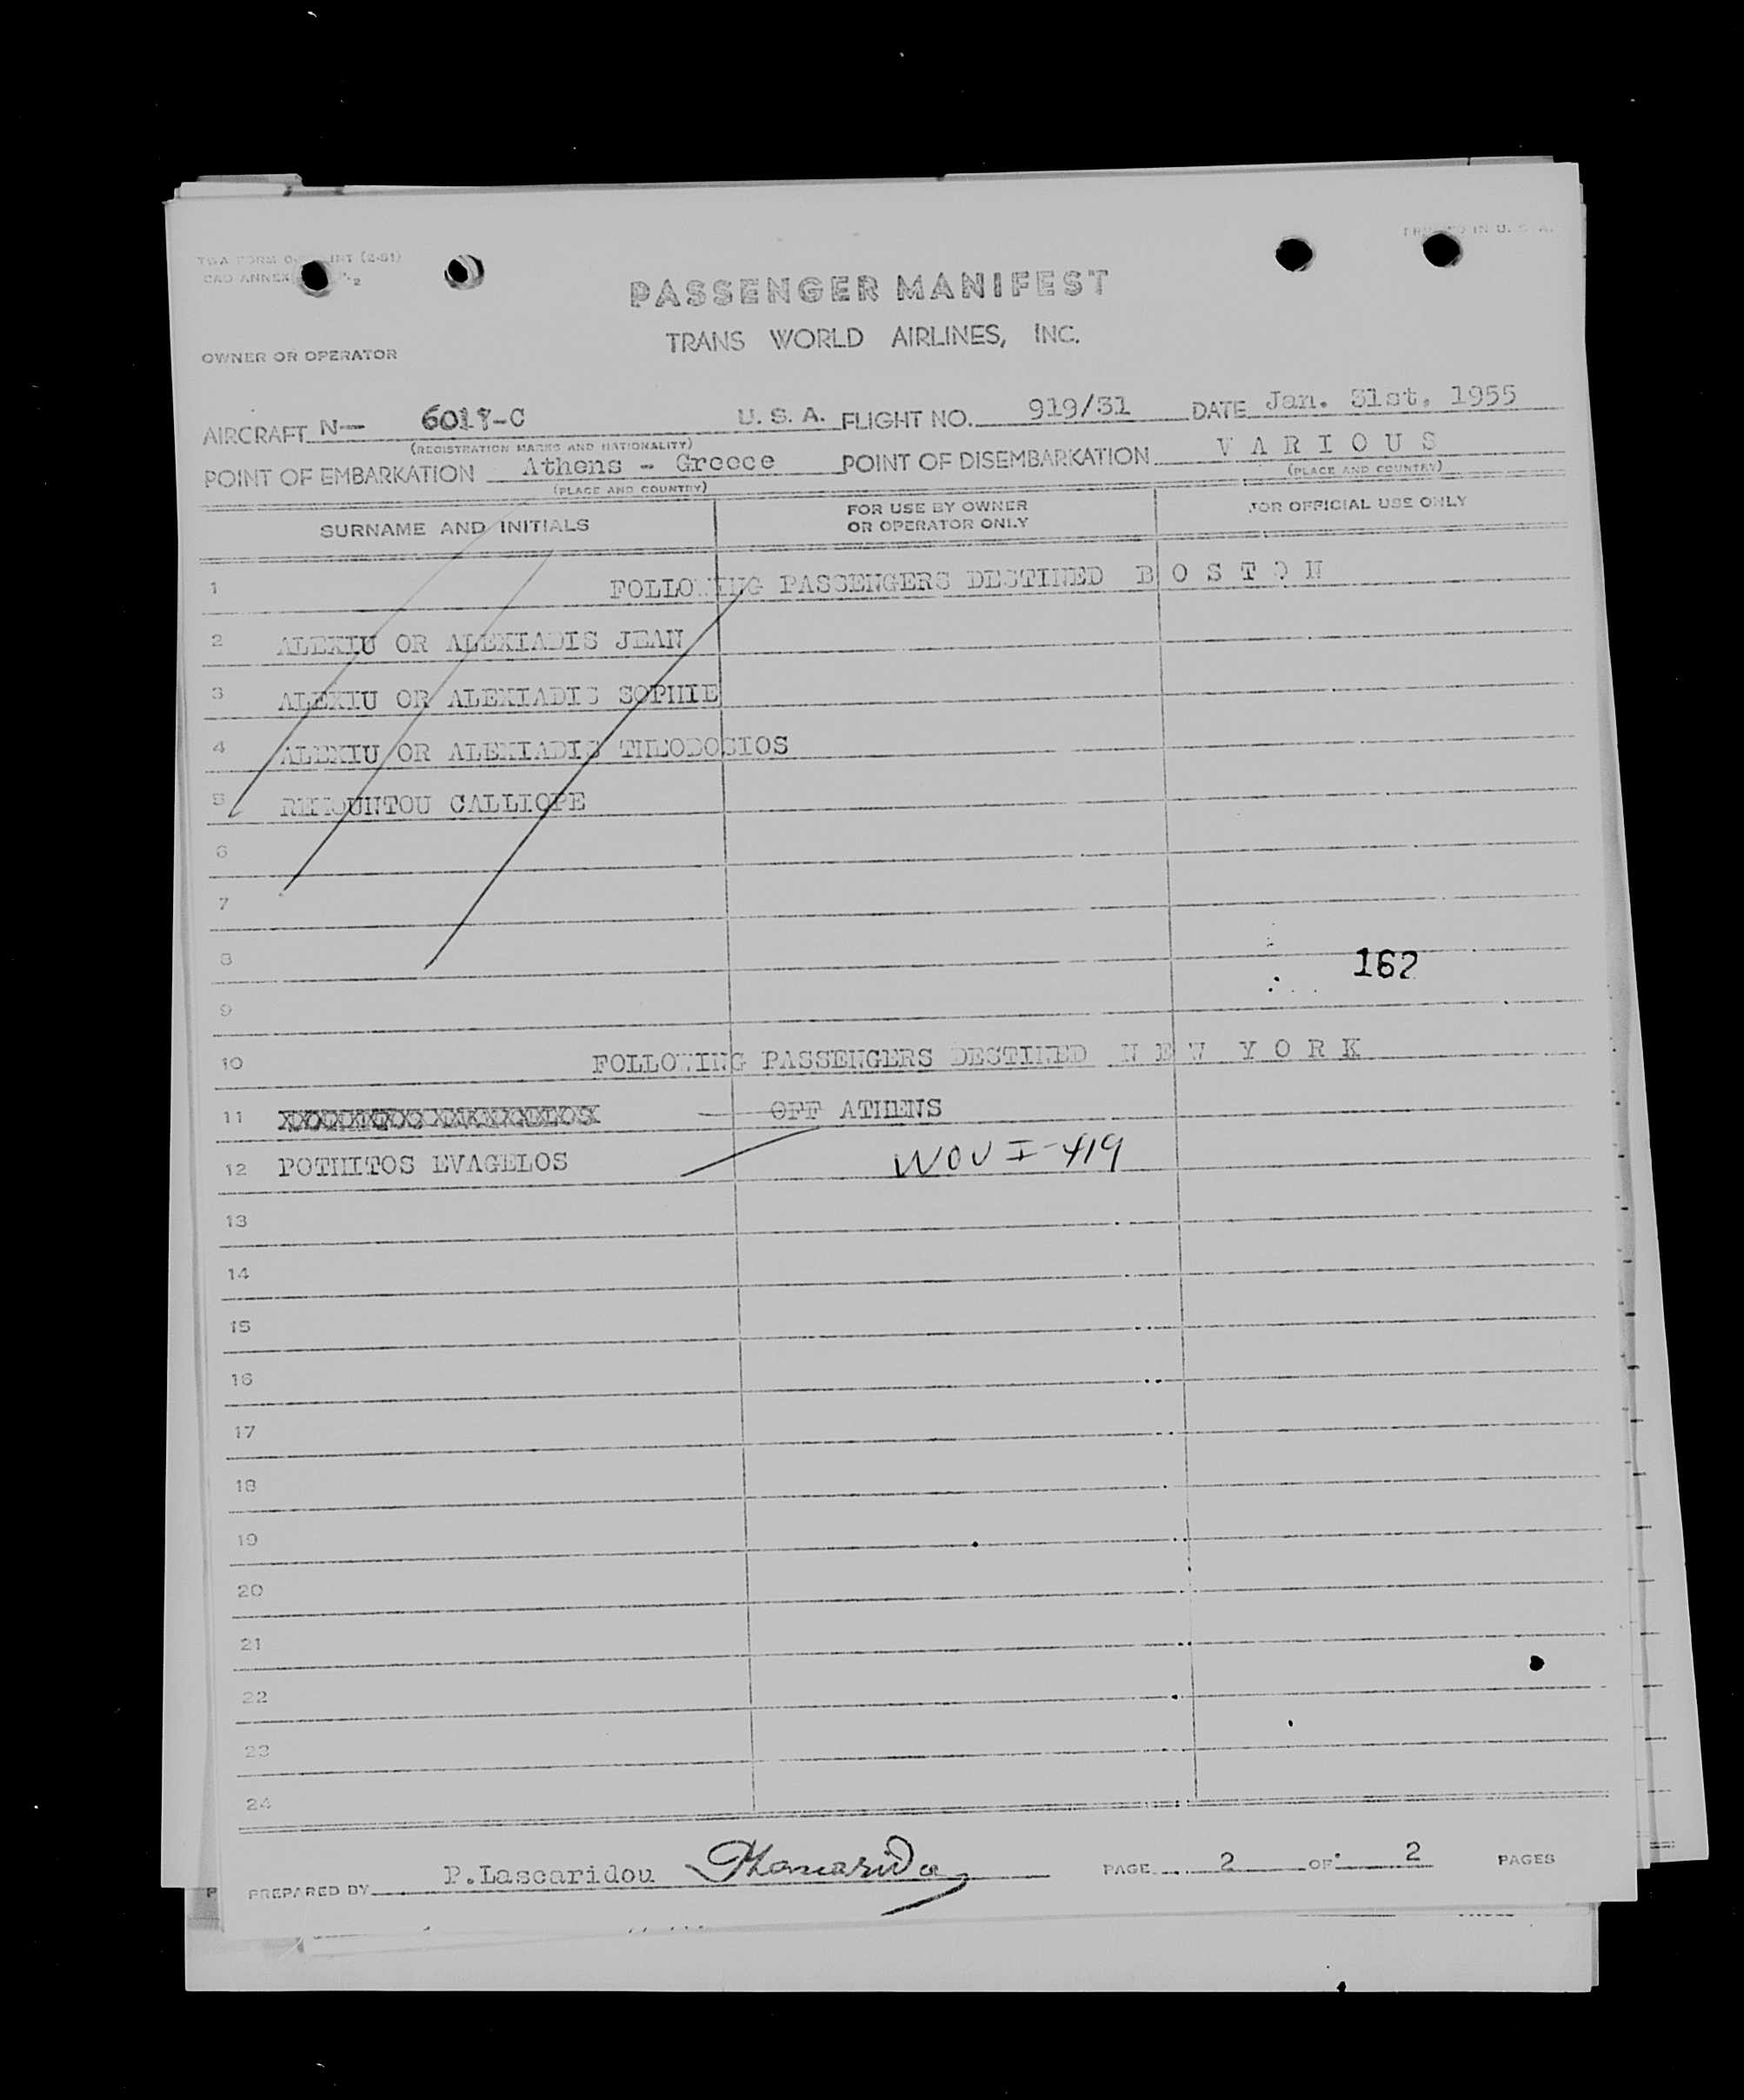 PRINTED IN U. S. A.
TWA FORM INT (2-51)
CAO ANNEX
PASSENGER MANIFEST
TRANS WORLD AIRLINES, INC.
OWNER OR OPERATOR
AIRCRAFT N— 6018-C U. S. A. FLIGHT NO. 919/31 DATE Jan. 31st. 1955
(REGISTRATION MARKS AND NATIONALITY)
POINT OF EMBARKATION Athens - Greece POINT OF DISEMBARKATION V A R I O U S
(PLACE AND COUNTRY) (PLACE AND COUNTRY)
SURNAME AND INITIALS FOR USE BY OWNER OR OPERATOR ONLY FOR OFFICIAL USE ONLY
1 FOLLOWING PASSENGERS DESTINED B O S T O N
2 ALEXIU OR ALEXIADIS JEAN
3 ALEXIU OR ALEXIADIS SOPHIE
4 ALEXIU OR ALEXIADIS THEODOSIOS
5 REMOUNTOU CALLIOPE
6
7
8 162
9
10 FOLLOWING PASSENGERS DESTINED N E W Y O R K
11 OFF ATHENS
12 POTHITOS EVAGELOS WOV I-419
13
14
15
16
17
18
19
20
21
22
23
24
PREPARED BY P.Lascaridou PAGE 2 OF 2 PAGES